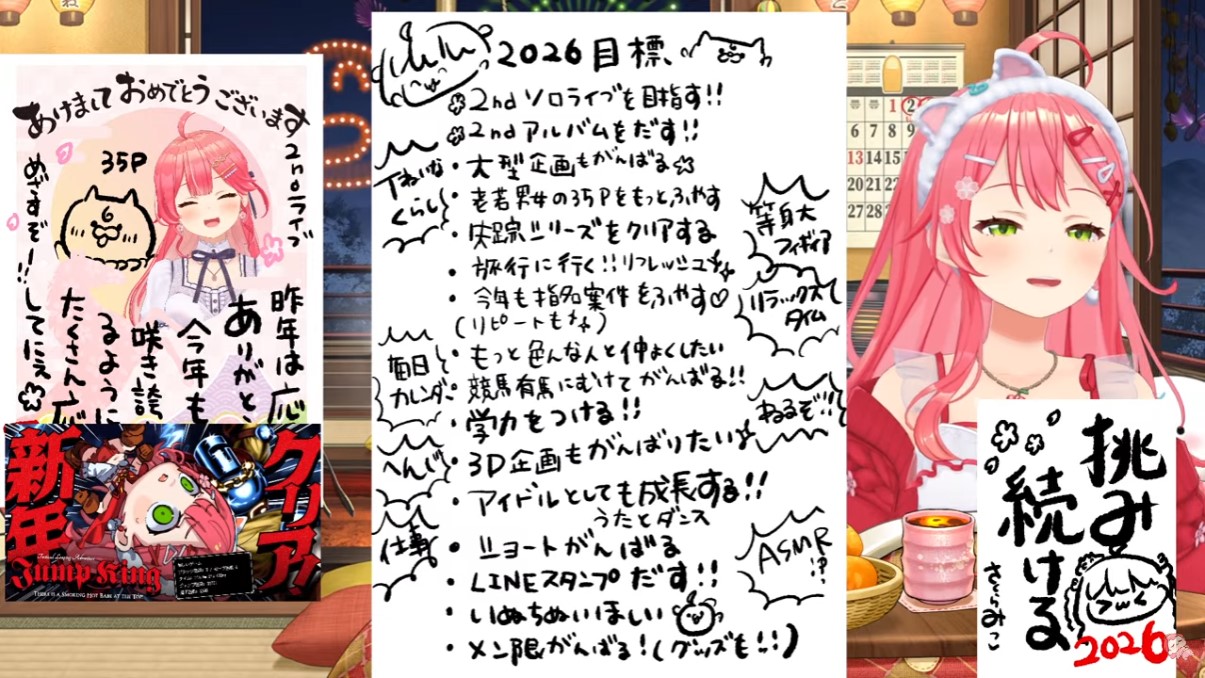 あけまして おめでとうございます
2ndライブ
めざすぞー!!
35P
昨年は応
ありがと
今年も
咲き誇
るように
たくさん応
してにぇ
新年
クリア!
Jump King
THERE IS A SMOKING HOT BABE AT THE TOP
2026目標
2ndソロライブを目指す!!
2ndアルバムをだす!!
・大型企画もがんばる
・老若男女の35Pをもっとふやす
・失踪シリーズをクリアする
・旅行に行く!!リフレッシュ
・今年も指名案件をふやす♡
(リピートもな)
・もっと色んな人と仲よくしたい
・競馬有馬にむけてがんばる!!
・学力をつける!!
・3D企画もがんばりたい
・アイドルとしても成長する!!
うたとダンス
・ショートがんばる
・LINEスタンプだす!!
・いぬちぬいほしい
・メン限がんばる!(グッズも!!)
ていねいな
くらし
毎日
カレンダー
へんじ
仕事
等身大
フィギィア
リラックス
タイム
ねるぞ!!
ASMR
!?
1 2
6 7 8 9
13 14 15
20 21 22
27 28
挑み
続ける
さくらみこ
2026